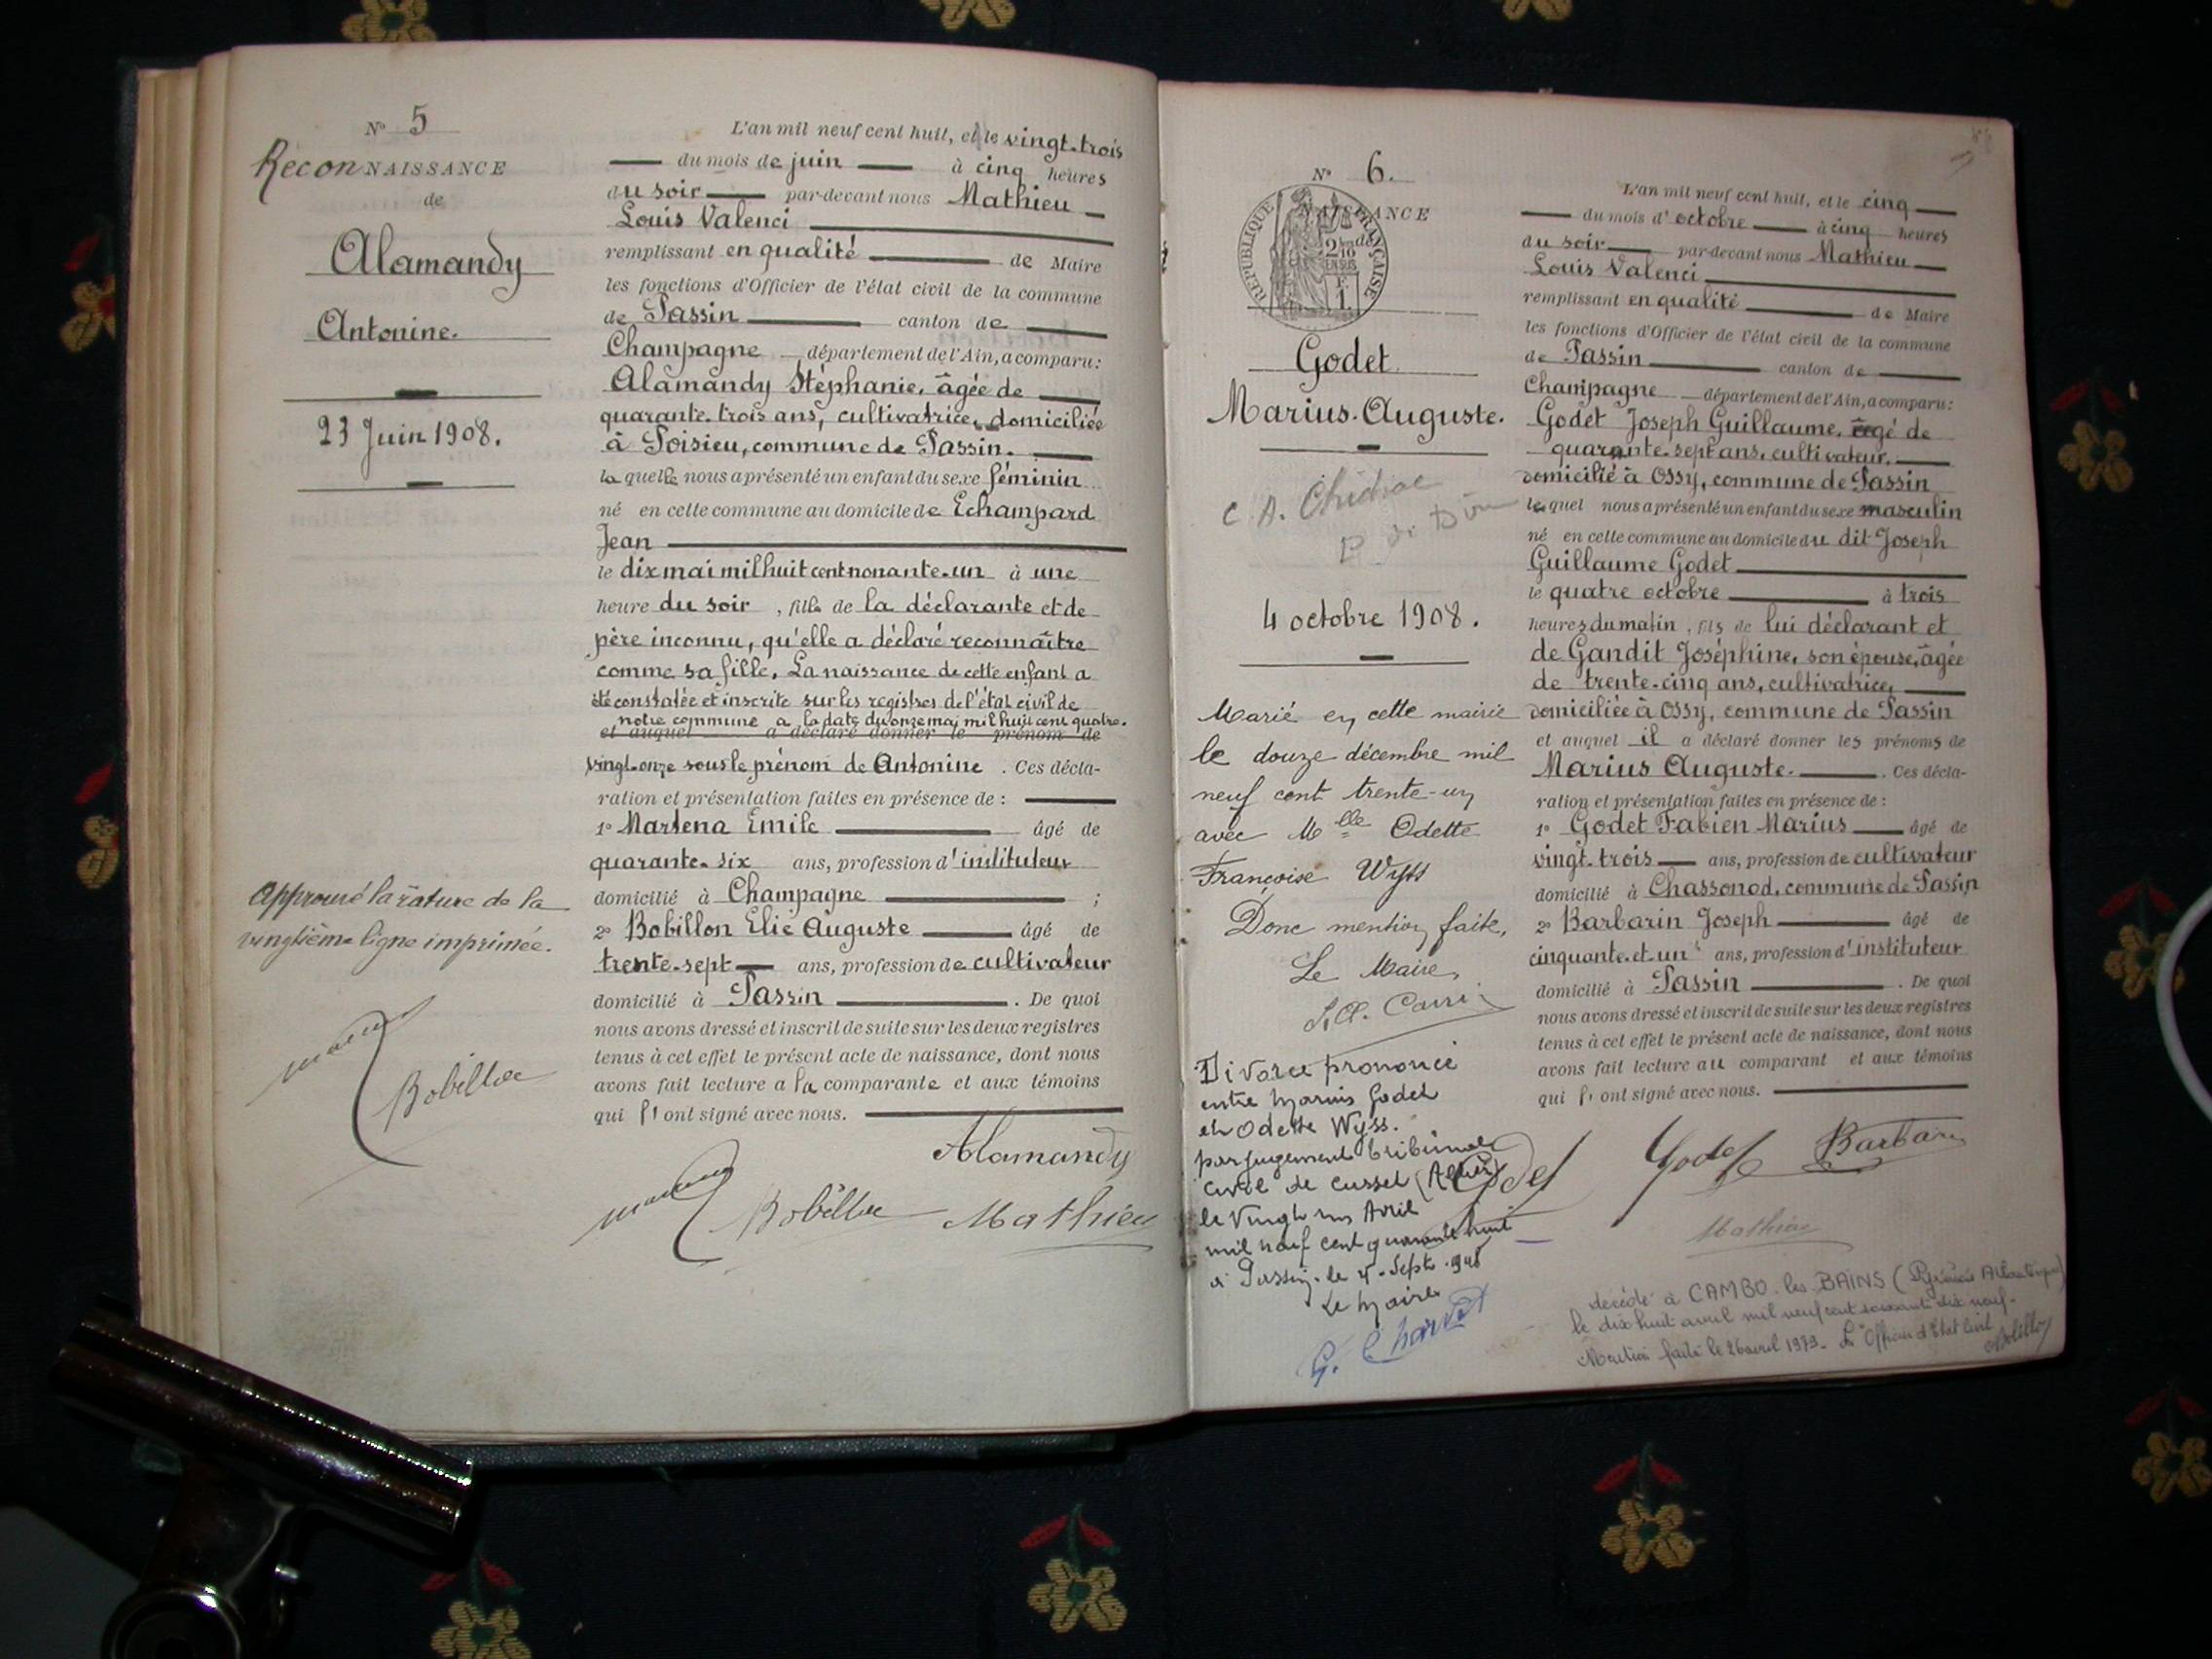 N° 5
ReconNAISSANCE
de
Alamandy
Antonine.
23 Juin 1908.
Approuvé la rature de la
vingtième ligne imprimée.
Bobillon
L'an mil neuf cent huit, et le vingt-trois
du mois de juin à cinq heures
du soir par-devant nous Mathieu
Louis Valenci
remplissant en qualité de Maire
les fonctions d'Officier de l'état civil de la commune
de Passin canton de
Champagne département de l'Ain, a comparu :
Alamandy Stéphanie, âgée de
quarante-trois ans, cultivatrice, domiciliée
à Poisieu, commune de Passin.
la quelle nous a présenté un enfant du sexe féminin
né en cette commune au domicile de Echampard
Jean
le dix mai mil huit cent nonante-un à une
heure du soir, fille de la déclarante et de
père inconnu, qu'elle a déclaré reconnaître
comme sa fille. La naissance de cette enfant a
été constatée et inscrite sur les registres de l'état civil de
notre commune a la date du onze mai mil huit cent quatre-
et auquel a déclaré donner le prénom de
vingt-onze sous le prénom de Antonine . Ces décla-
ration et présentation faites en présence de :
1° Martena Emile âgé de
quarante-six ans, profession d'instituteur
domicilié à Champagne ;
2° Bobillon Elie Auguste âgé de
trente-sept ans, profession de cultivateur
domicilié à Passin . De quoi
nous avons dressé et inscrit de suite sur les deux registres
tenus à cet effet le présent acte de naissance, dont nous
avons fait lecture a la comparante et aux témoins
qui l'ont signé avec nous.
Alamandy
Bobillon Mathieu
N° 6.
NAISSANCE
REPUBLIQUE FRANÇAISE
Godet
Marius-Auguste.
4 octobre 1908.
Marié en cette mairie
le douze décembre mil
neuf cent trente-un
avec Mlle Odette
Françoise Wyss
Donc mention faite,
Le Maire,
Divorce prononcé
entre Marius Godet
et Odette Wyss.
par jugement tribunal
civil de Cusset (Allier)
le vingt un Avril
mil neuf cent quarante huit
à Passin le 4 Septe 1948
Le Maire
L'an mil neuf cent huit, et le cinq
du mois d'octobre à cinq heures
du soir par-devant nous Mathieu
Louis Valenci
remplissant en qualité de Maire
les fonctions d'Officier de l'état civil de la commune
de Passin canton de
Champagne département de l'Ain, a comparu :
Godet Joseph Guillaume, âgé de
quarante-sept ans, cultivateur,
domicilié à Ossy, commune de Passin
le quel nous a présenté un enfant du sexe masculin
né en cette commune au domicile du dit Joseph
Guillaume Godet
le quatre octobre à trois
heures du matin, fils de lui déclarant et
de Gandit Joséphine, son épouse, âgée
de trente-cinq ans, cultivatrice,
domiciliée à Ossy, commune de Passin
et auquel il a déclaré donner les prénoms de
Marius Auguste. . Ces décla-
ration et présentation faites en présence de :
1° Godet Fabien Marius âgé de
vingt-trois ans, profession de cultivateur
domicilié à Chassonod, commune de Passin
2° Barbarin Joseph âgé de
cinquante-et-un ans, profession d'instituteur
domicilié à Passin . De quoi
nous avons dressé et inscrit de suite sur les deux registres
tenus à cet effet le présent acte de naissance, dont nous
avons fait lecture au comparant et aux témoins
qui l'ont signé avec nous.
Godet Godet Barbarin
Mathieu
décédé à CAMBO-les-BAINS (Pyrénées Atlantiques)
le dix huit avril mil neuf cent soixante dix neuf.
Mention faite le 26 avril 1979. L'Officier d'Etat Civil